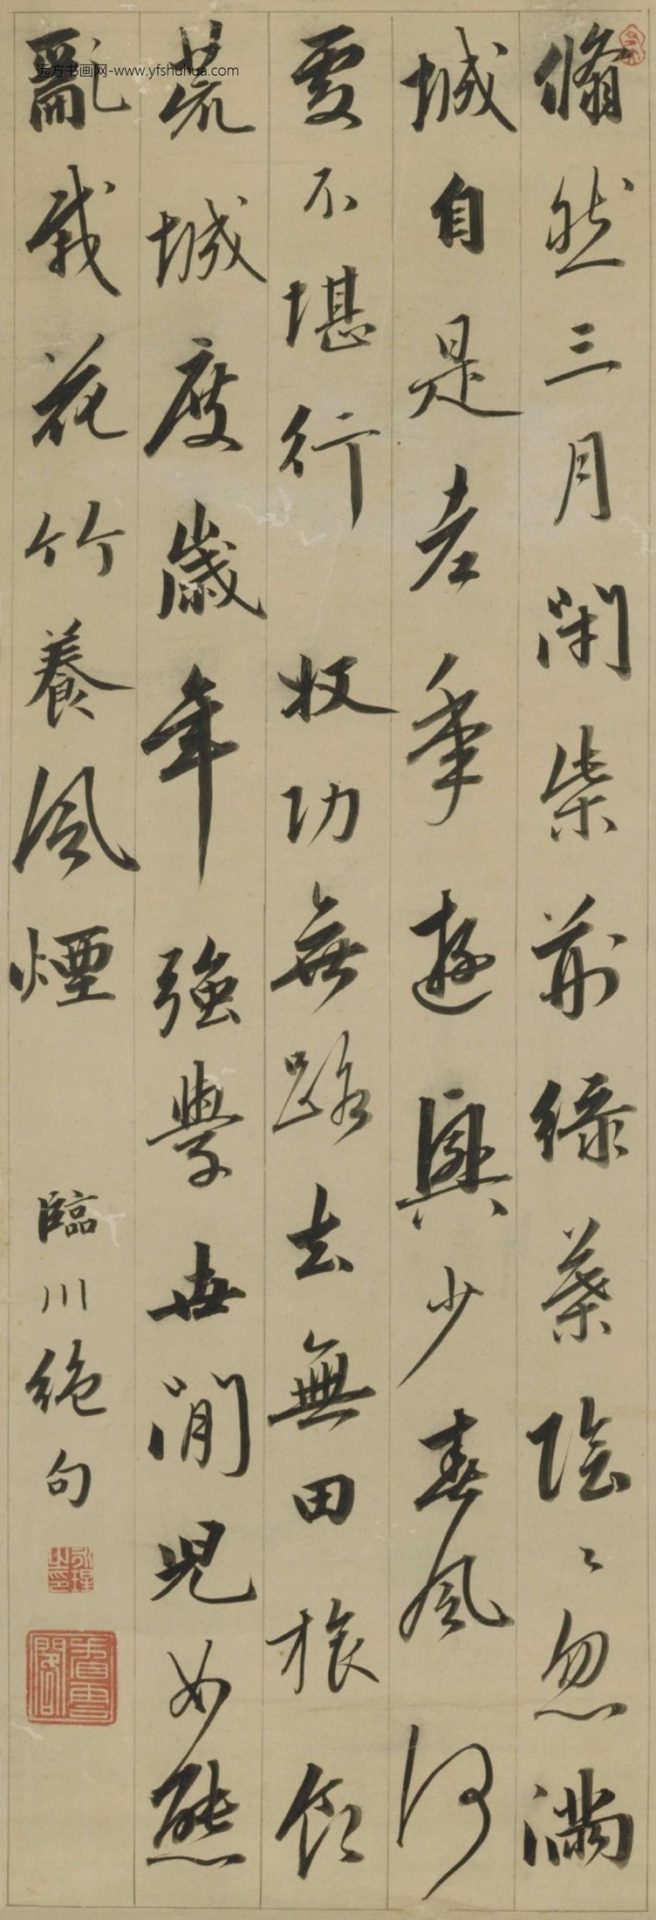 翛然三月閉柴荊綠葉陰〻忽滿
城自是老年遊興少春風何
處不堪行 收功無路去無田旅食
荒城度歲年強學世間兒女態
亂栽花竹養風煙 臨川絕句
远方书画网-www.yfshuhua.com